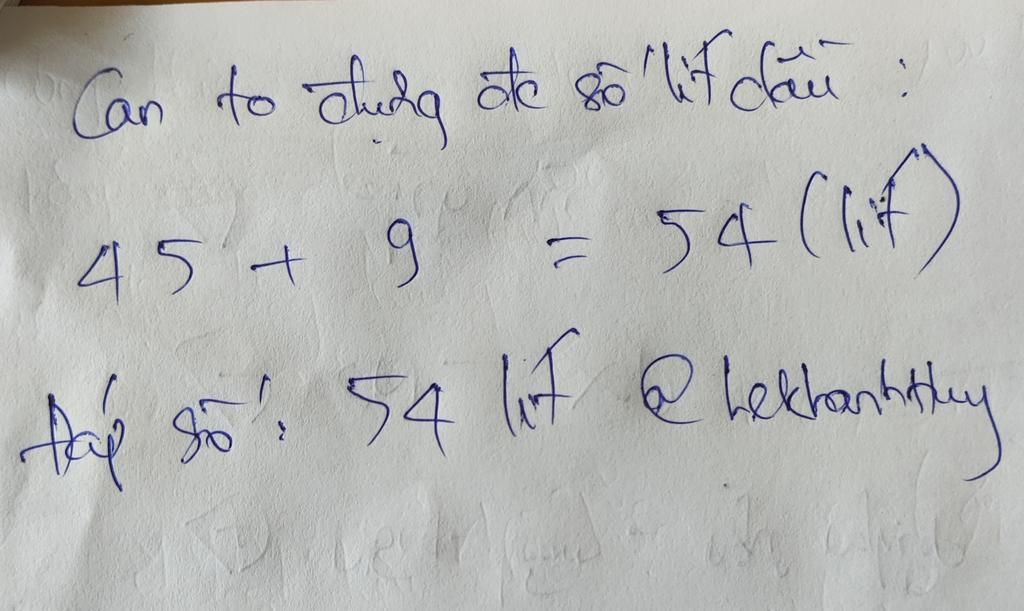 Can to đựng đc số lít dầu :
45 + 9 = 54 (lít)
Đáp số : 54 lít @ Lekhanhthuy